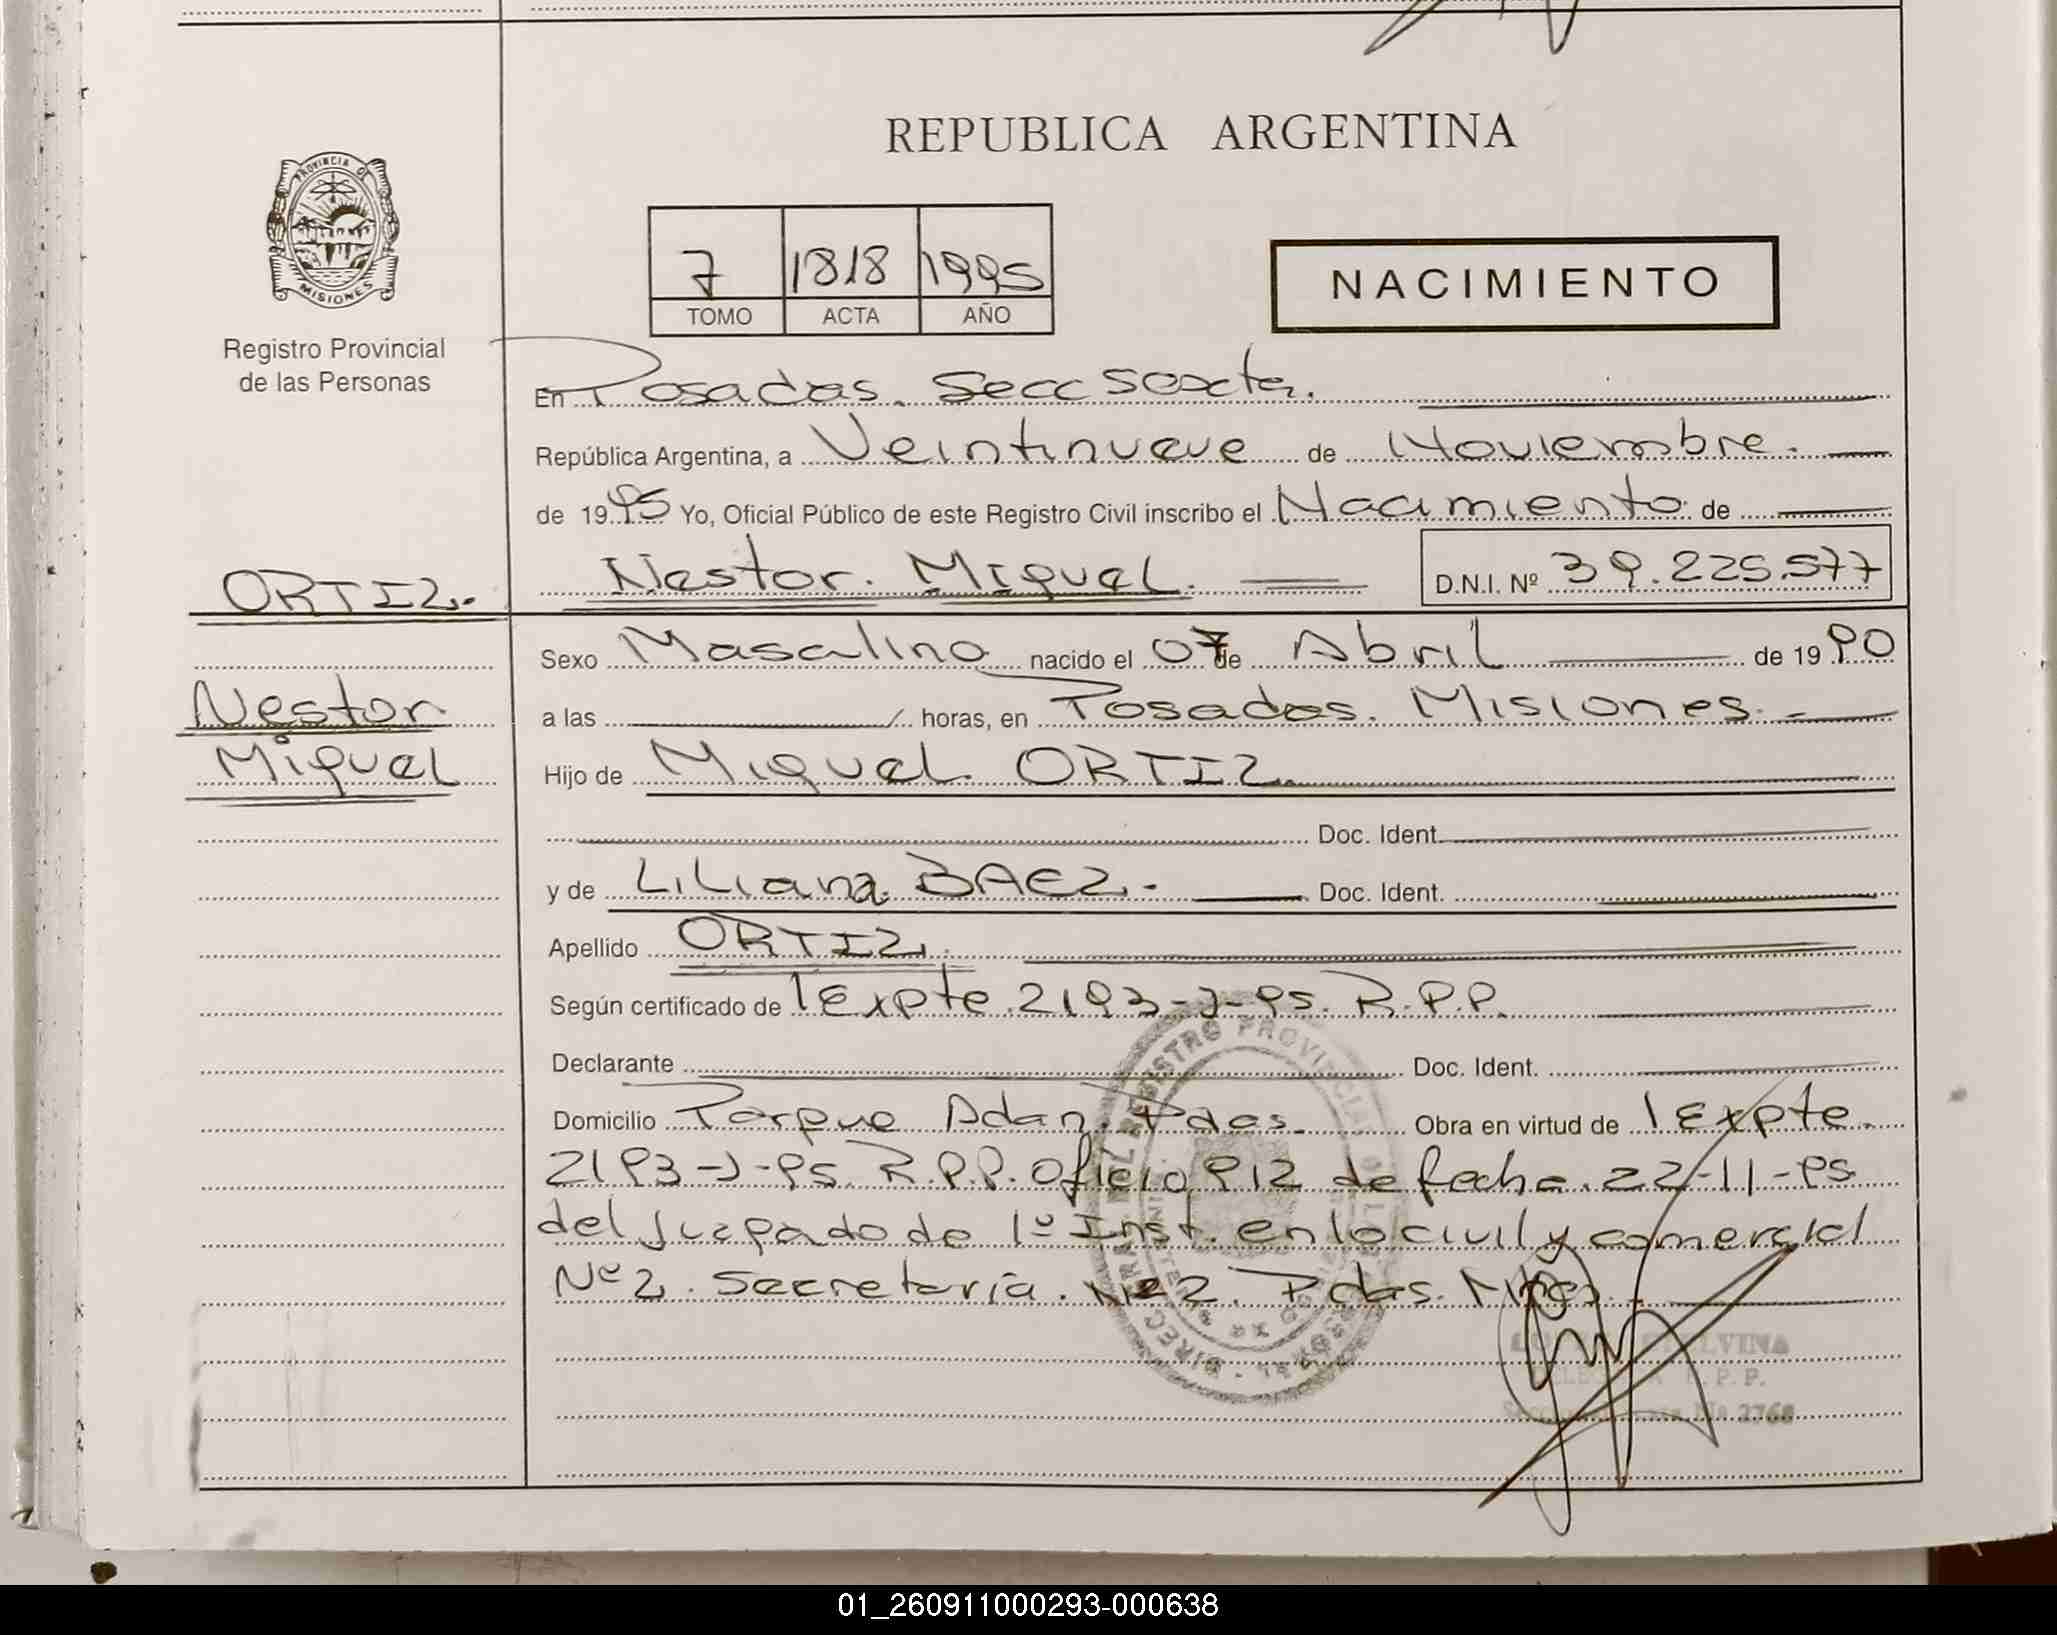 REPUBLICA ARGENTINA
PROVINCIA DE
MISIONES
Registro Provincial
de las Personas
7 1818 1995
TOMO ACTA AÑO
NACIMIENTO
En Posadas. Secc Sexta.
República Argentina, a Veintinueve de Noviembre.
de 1995 Yo, Oficial Público de este Registro Civil inscribo el Nacimiento de
Nestor. Miguel. D.N.I. Nº 39.225.577
ORTIZ.
Nestor
Miguel
Sexo Masculino nacido el 07 de Abril de 1990
a las horas, en Posadas. Misiones.
Hijo de Miguel ORTIZ
Doc. Ident.
y de Liliana BAEZ.- Doc. Ident.
Apellido ORTIZ.
Según certificado de Expte. 2193-J-95. R.P.P.
Declarante Doc. Ident.
Domicilio Parque Adan. Pdas. Obra en virtud de Expte.
2193-J-95. R.P.P. Oficio 912 de fecha 22-11-95
del Juzgado de 1º Inst. en lo civil y comercial
Nº2. Secretaría. Nº2. Pdas. Mnes.
REGISTRO PROVINCIAL
R.P.P.
2768
01_260911000293-000638